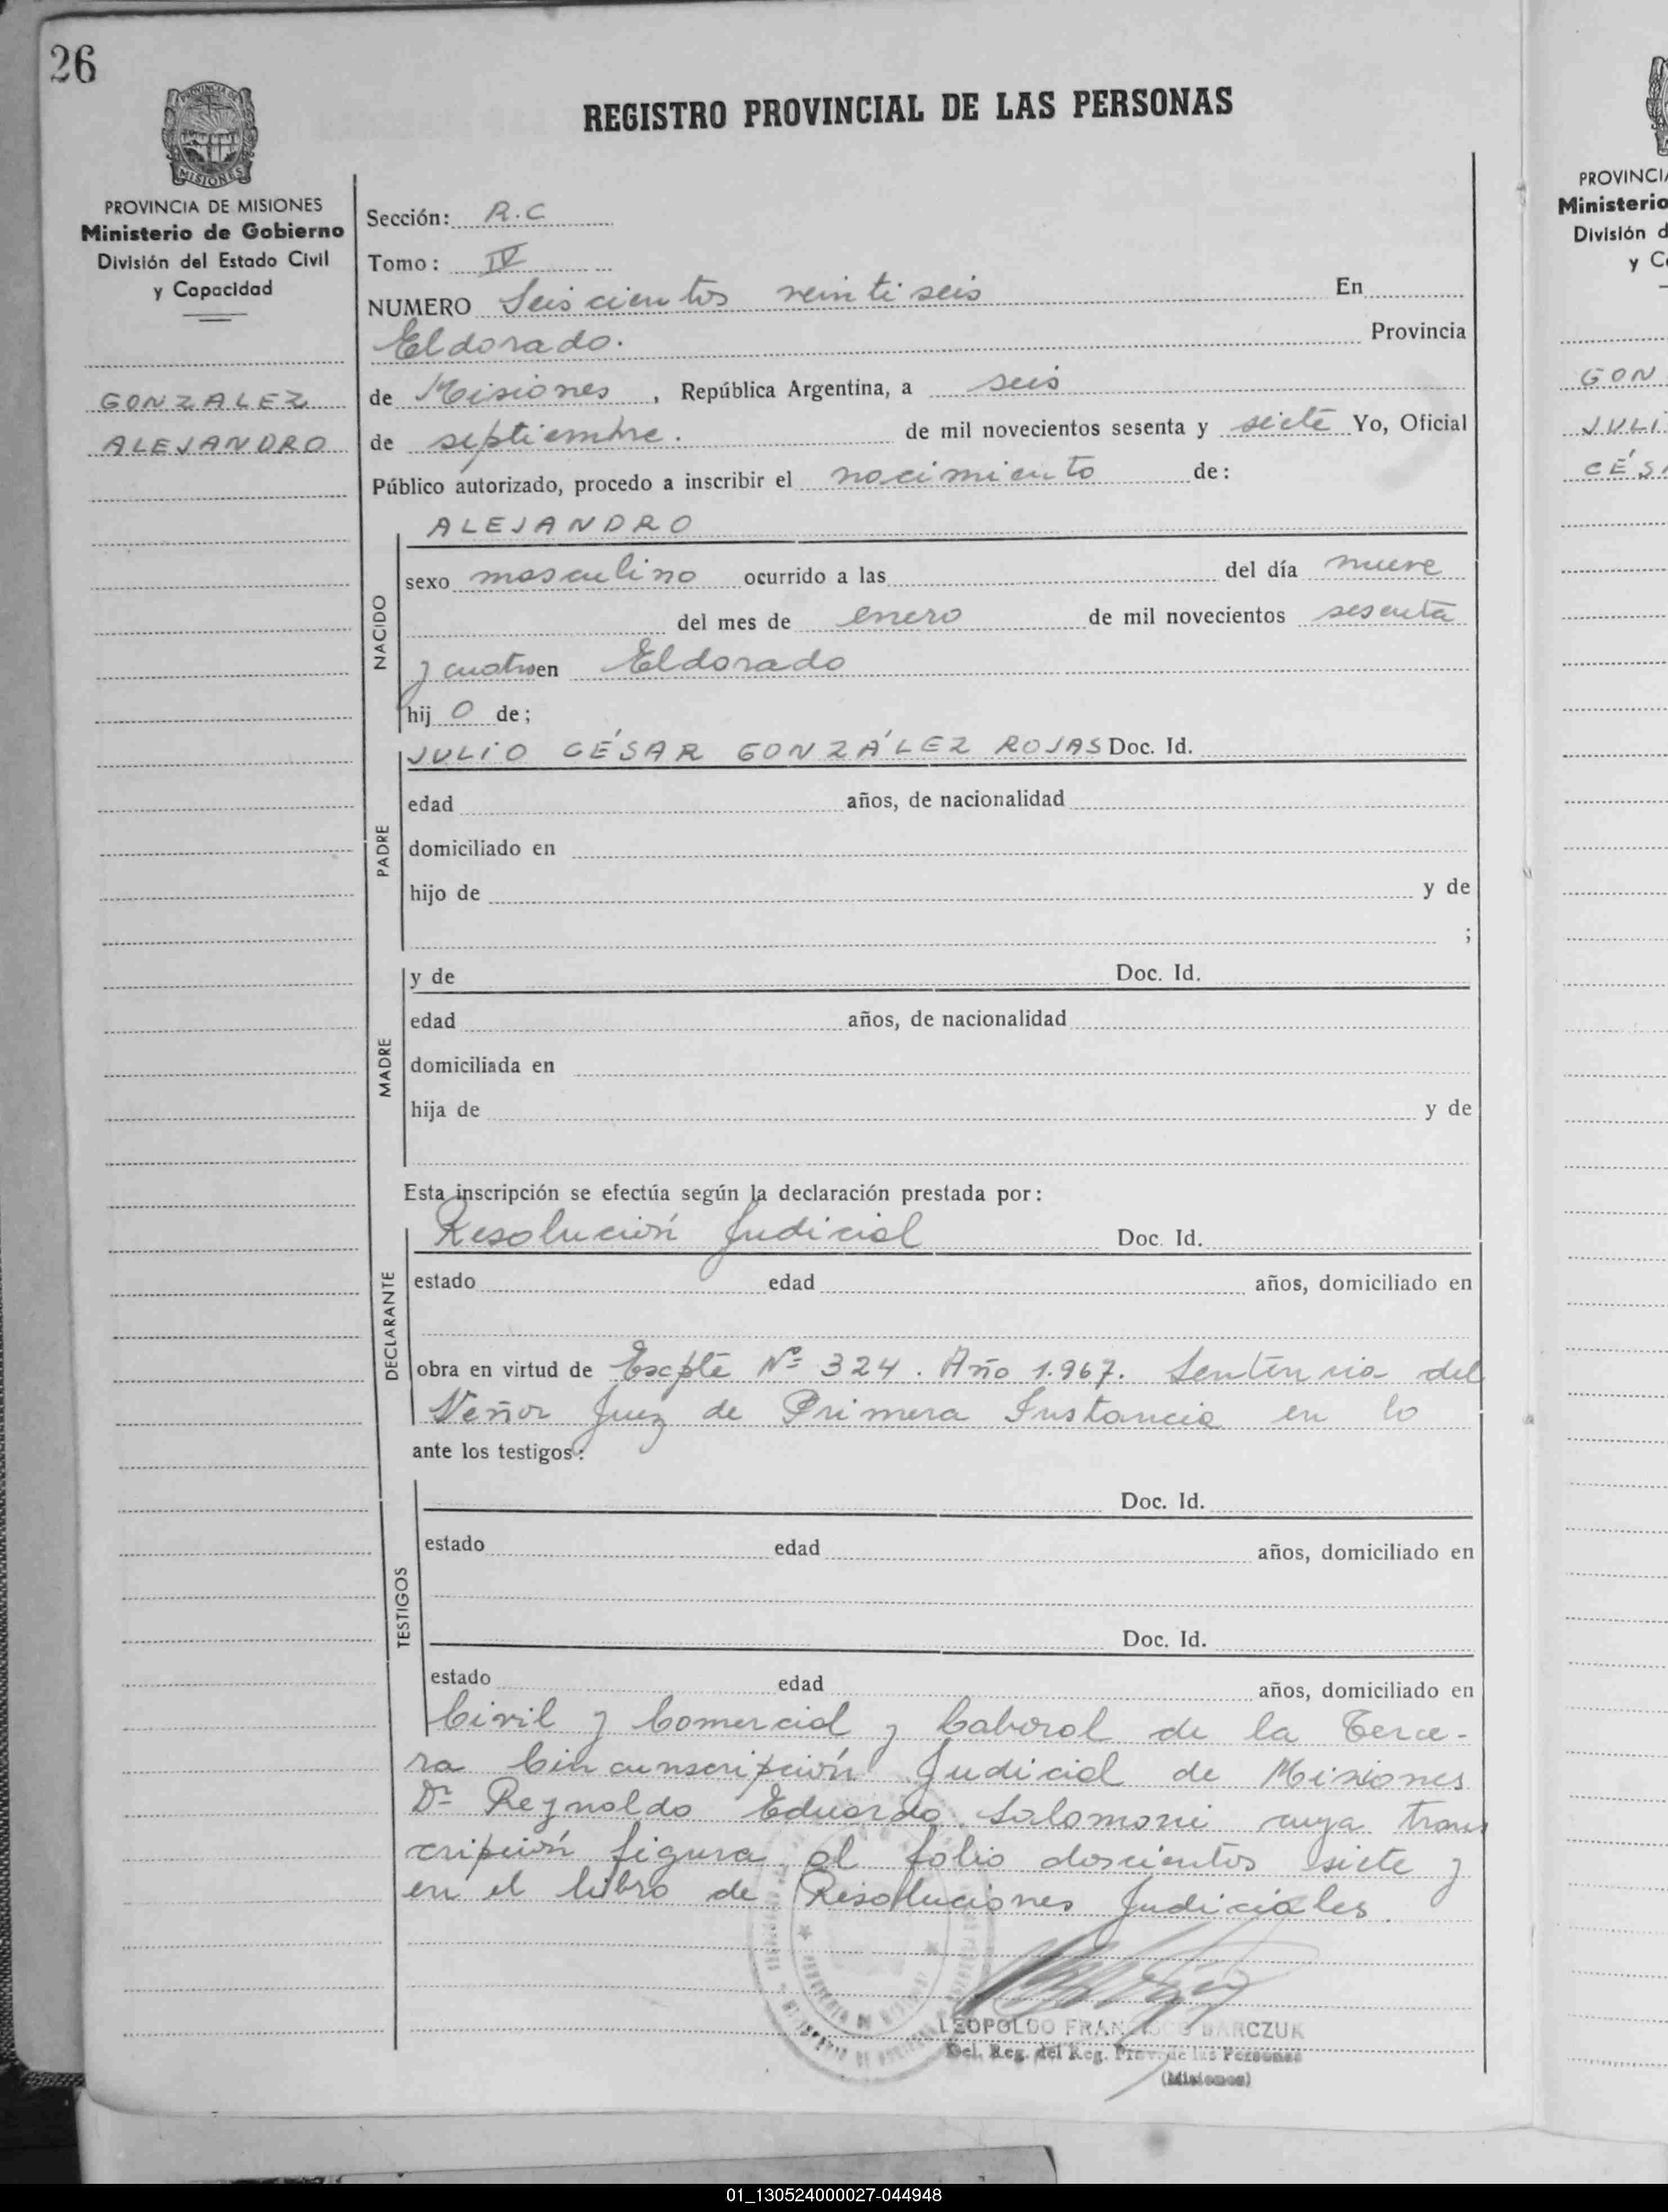 26
REGISTRO PROVINCIAL DE LAS PERSONAS
MISIONES
PROVINCIA DE MISIONES
Ministerio de Gobierno
División del Estado Civil
y Capacidad
GONZALEZ
ALEJANDRO
Sección: R.C
Tomo: IV
NUMERO Seiscientos veintiseis En
Eldorado. Provincia
de Misiones, República Argentina, a seis
de septiembre. de mil novecientos sesenta y siete Yo, Oficial
Público autorizado, procedo a inscribir el nacimiento de:
ALEJANDRO
NACIDO
sexo masculino ocurrido a las del día nueve
del mes de enero de mil novecientos sesenta
y cuatro en Eldorado
hij o de;
PADRE
JULIO CÉSAR GONZÁLEZ ROJAS Doc. Id.
edad años, de nacionalidad
domiciliado en
hijo de y de
;
MADRE
y de Doc. Id.
edad años, de nacionalidad
domiciliada en
hija de y de
Esta inscripción se efectúa según la declaración prestada por:
DECLARANTE
Resolución Judicial Doc. Id.
estado edad años, domiciliado en
obra en virtud de Excpte Nº 324. Año 1.967. Sentencia del
Señor Juez de Primera Instancia en lo
ante los testigos:
TESTIGOS
Doc. Id.
estado edad años, domiciliado en
Doc. Id.
estado edad años, domiciliado en
Civil y Comercial y Laboral de la Terce-
ra Circunscripción Judicial de Misiones
Dr Reynaldo Eduardo Salomoni cuya trans
cripción figura al folio doscientos siete y
en el libro de Resoluciones Judiciales.
LEOPOLDO FRANCISCO BARCZUK
Del. Reg. del Reg. Prov. de las Personas
(Misiones)
PROVINCIA
Ministerio
División d
y C
GON
JULI
CÉSA
01_130524000027-044948